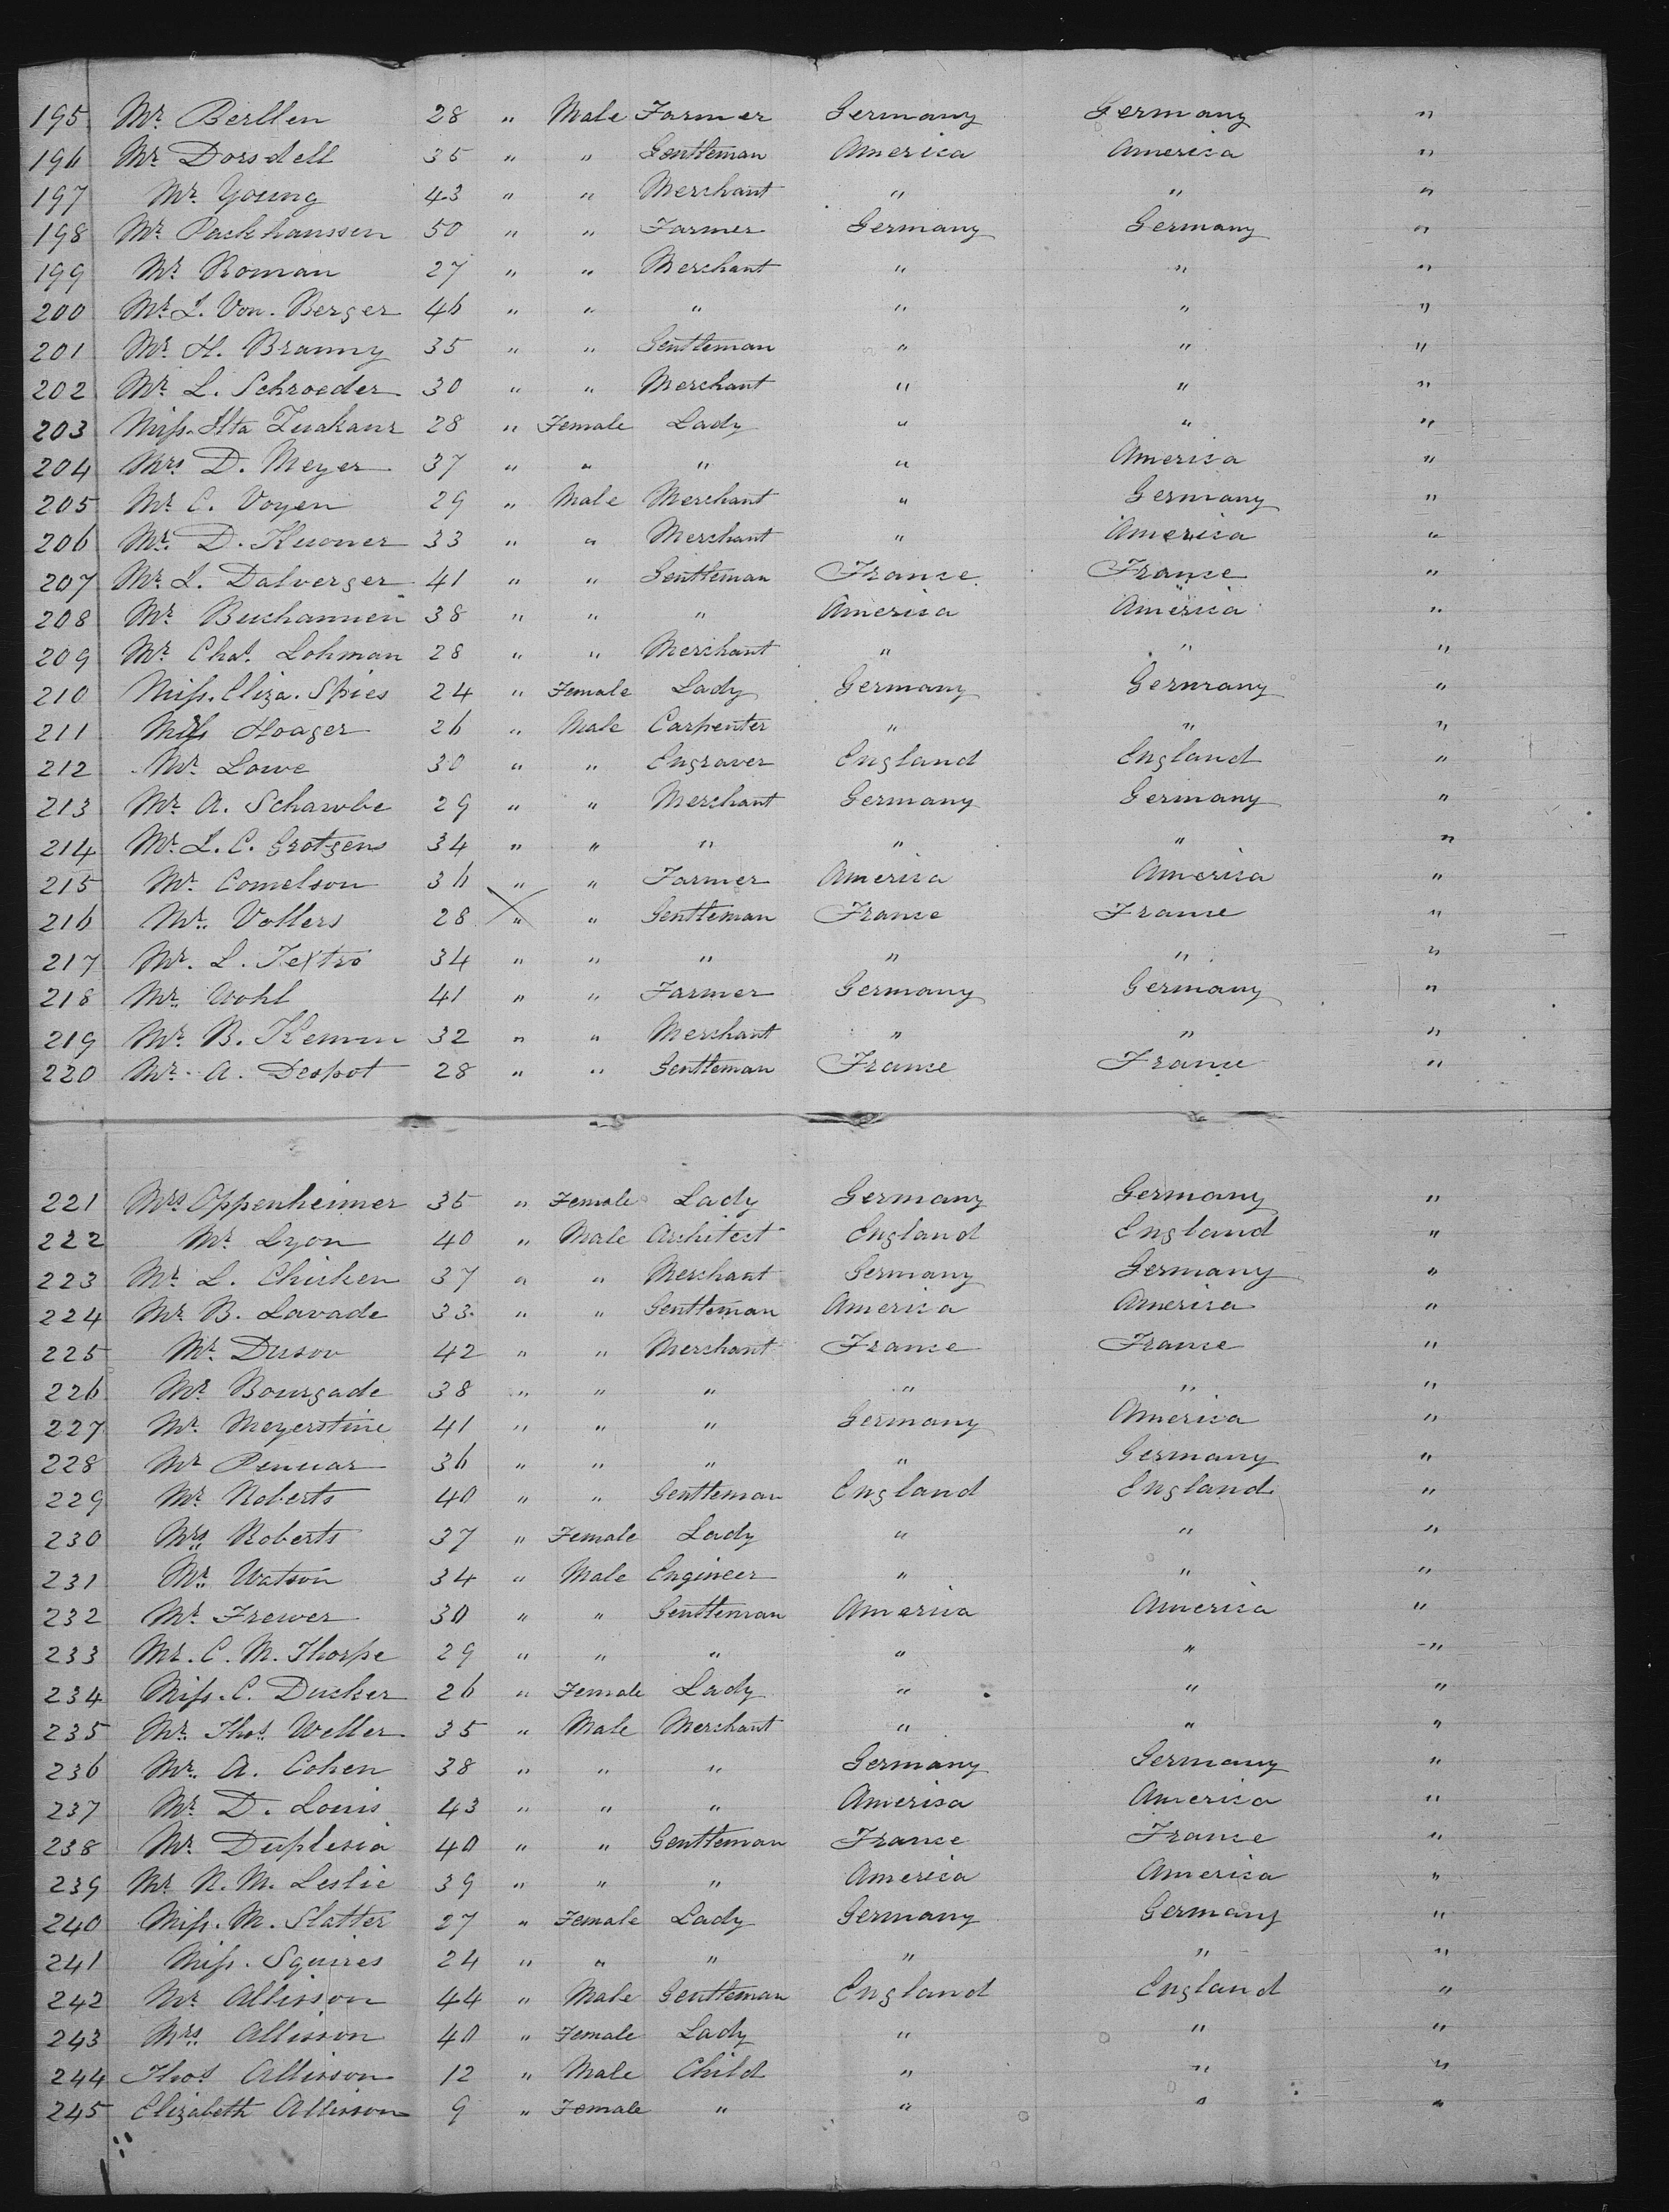 195 Mr. Berllen 28 " Male Farmer Germany Germany "
196 Mr Dorsdell 35 " " Gentleman America America "
197 Mr. Young 43 " " Merchant " " "
198 Mr Packhanssen 50 " " Farmer Germany Germany "
199 Mr. Roman 27 " " Merchant " " "
200 Mr. L. Von. Berger 46 " " " " " "
201 Mr. H. Branny 35 " " Gentleman " " "
202 Mr. L. Schroeder 30 " " Merchant " " "
203 Miss. 28 " Female Lady " " "
204 Mrs D. Meyer 37 " " " " America "
205 Mr C. Voyen 29 " Male Merchant " Germany "
206 Mr. D. 33 " " Merchant " America "
207 Mr. L. Dalverger 41 " " Gentleman France France "
208 Mr. Buchannen 38 " " " America America "
209 Mr. Chas. Lohman 28 " " Merchant " " "
210 Miss. Eliza. Spies 24 " Female Lady Germany Germany "
211 Hoager 26 " Male Carpenter " " "
212 Mr. Lowe 30 " " Engraver England England "
213 Mr. A. Schawbe 29 " " Merchant Germany Germany "
214 Mr. L. C. Grotgens 34 " " " " " "
215 Mr. Comelson 36 " " Farmer America America "
216 Mr. Vollers 28 " " Gentleman France France "
217 Mr. L. Textro 34 " " " " " "
218 Mr. Wohl 41 " " Farmer Germany Germany "
219 Mr. B. Kemm 32 " " Merchant " " "
220 Mr. A. Despot 28 " " Gentleman France France "
221 Mrs Oppenheimer 35 " Female Lady Germany Germany "
222 Mr. Lyon 40 " Male Architect England England "
223 Mr. L. Chicken 37 " " Merchant Germany Germany "
224 Mr. B. Lavade 33 " " Gentleman America America "
225 Mr. Dusov 42 " " Merchant France France "
226 Mr. Bourgade 38 " " " " " "
227 Mr. Meyerstine 41 " " " Germany America "
228 Mr Penuar 36 " " " " Germany "
229 Mr. Roberts 40 " " Gentleman England England "
230 Mrs Roberts 37 " Female Lady " " "
231 Mr. Watson 34 " Male Engineer " " "
232 Mr. Frewer 30 " " Gentleman America America "
233 Mr. C. M. Thorpe 29 " " " " " "
234 Miss. C. Ducker 26 " Female Lady " " "
235 Mr. Thos. Weller 35 " Male Merchant " " "
236 Mr. A. Cohen 38 " " " Germany Germany "
237 Mr. D. Louis 43 " " " America America "
238 Mr. Duplesia 40 " " Gentleman France France "
239 Mr. R. M. Leslie 39 " " " America America "
240 Miss. M. Slatter 27 " Female Lady Germany Germany "
241 Miss. Squires 24 " " " " " "
242 Mr. Allisson 44 " Male Gentleman England England "
243 Mrs. Allisson 40 " Female Lady " " "
244 Thos Allisson 12 " Male Child " " "
245 Elizabeth Allisson 9 " Female " " " "